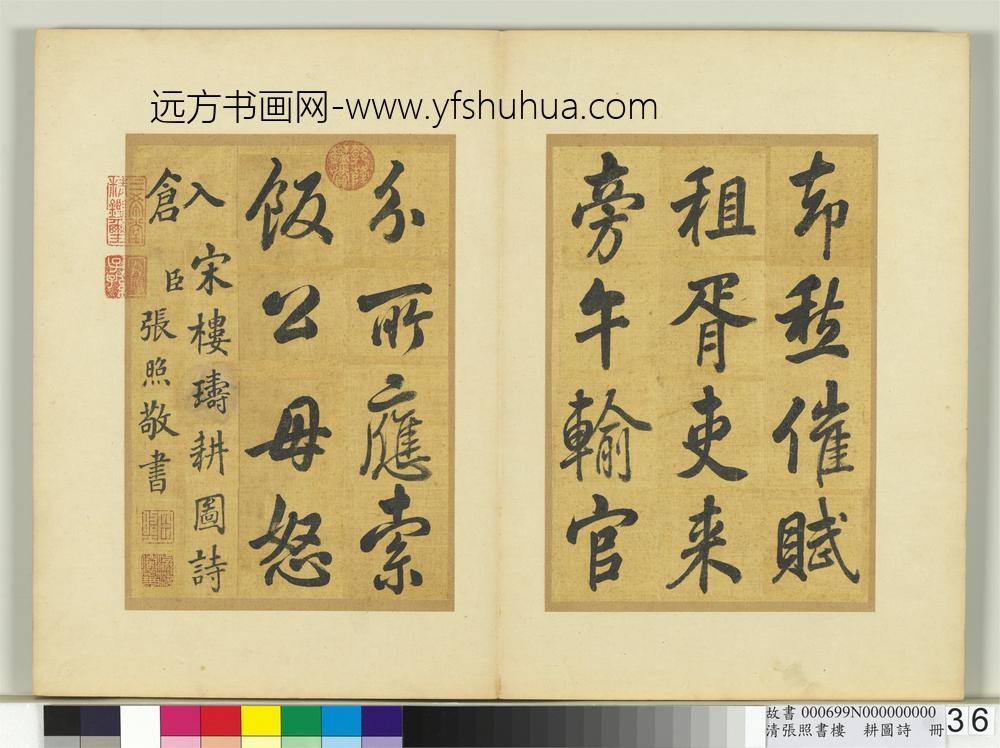 远方书画网-www.yfshuhua.com
却愁催賦
租胥吏来
旁午輸官
分所應索
飯公毋怒
入倉
宋樓璹耕圖詩
臣張照敬書
三希堂精鑑璽
宜子孫
故書 000699N000000000
清張照書樓 耕圖詩 冊
36